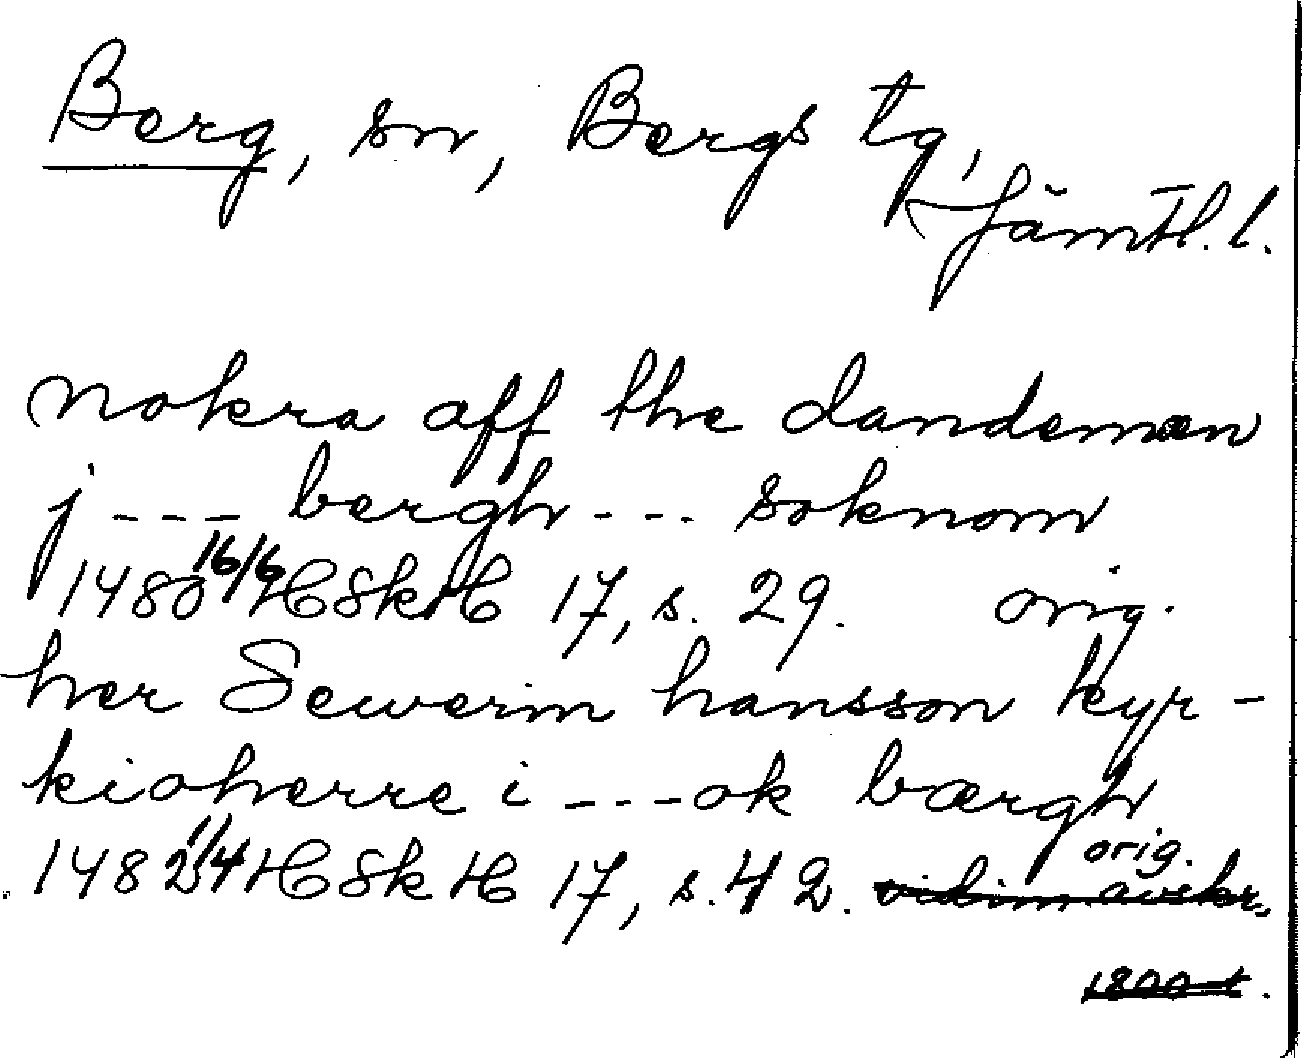 Berg, sn, Bergs tg,
Jämtl. l.
nokra aff the dandemæn
j --- bergh --- soknom
1480 16/6 HSkH 17, s. 29. orig.
her Sewerin hansson kyr-
kioherre i --- ok bærgh
1482 1/4 HSkH 17, s. 42. orig. vidim. avskr.
1800-t.